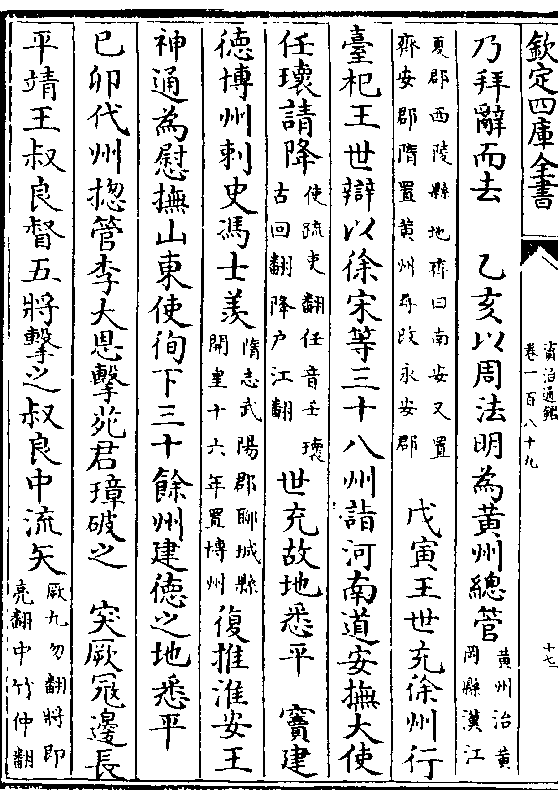 欽定四庫全書
資治通鑑
卷一百八十九
十七
乃拜辭而去　乙亥以周法明為黃州總管黃州治黃岡縣漢江
夏郡西陵縣地齊曰南安又置齊安郡隋置黃州尋改永安郡　戊寅王世充徐州行
臺杞王世辯以徐宋等三十八州詣河南道安撫大使
任瓌請降使疏吏翻任音壬瓌古回翻降户江翻世充故地悉平　竇建
德博州刺史馮士羨隋志武陽郡聊城縣開皇十六年置博州復推淮安王
神通為慰撫山東使徇下三十餘州建德之地悉平
己卯代州揔管李大恩擊苑君璋破之　突厥冦邊長
平靖王叔良督五將擊之叔良中流矢厥九勿翻將即亮翻中竹仲翻